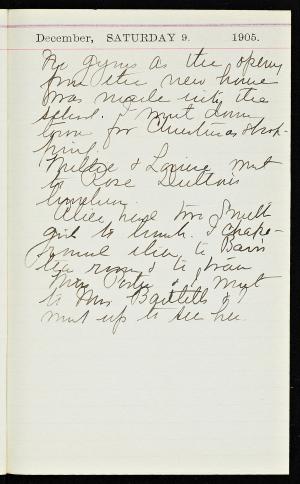 December, SATURDAY 9. 1905.
as the opening
from the new house
was made into the
school. I went down
town for Christmas shop-
ping.
Mildred & Louise went
to Rose Dutton's
luncheon.
Alice had two Smith
girls to lunch. I chape-
roned them to
tea room & to train
Mrs Porter & I went
to Mrs Bartletts &
went up to see her.